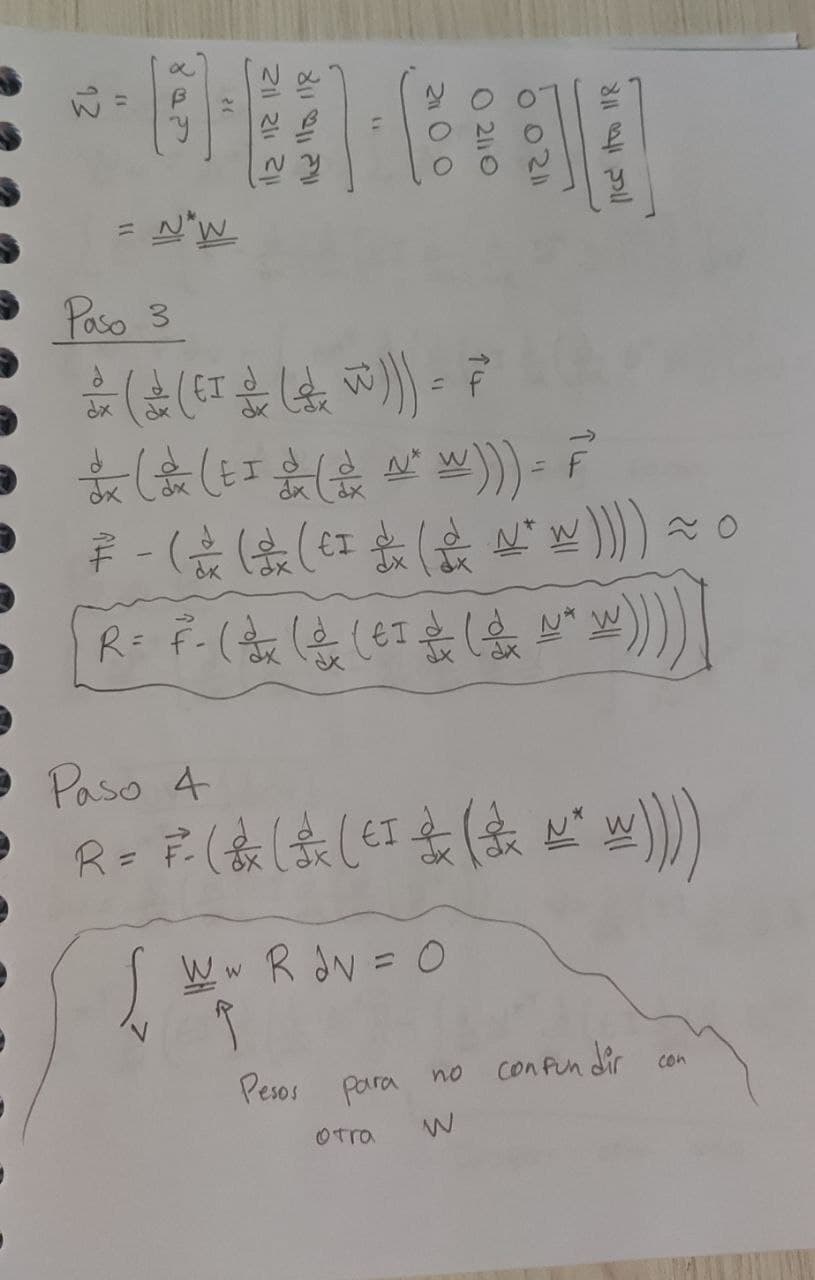 W⃗ = [α β γ] ≈ [N̳ α̳ N̳ β̳ N̳ γ̳] = [N̳ 0 0 0 N̳ 0 0 0 N̳] [α̳ β̳ γ̳]
= N̳* W̳
Paso 3
d/dx (d/dx (EI d/dx (d/dx W⃗))) = F⃗
d/dx (d/dx (EI d/dx (d/dx N̳* W̳))) = F⃗
F⃗ - (d/dx (d/dx (EI d/dx (d/dx N̳* W̳)))) ≈ 0
R = F⃗ - (d/dx (d/dx (EI d/dx (d/dx N̳* W̳))))
Paso 4
R = F⃗ - (d/dx (d/dx (EI d/dx (d/dx N̳* W̳))))
∫V W̳w R dV = 0
Pesos para no confundir con
otra W